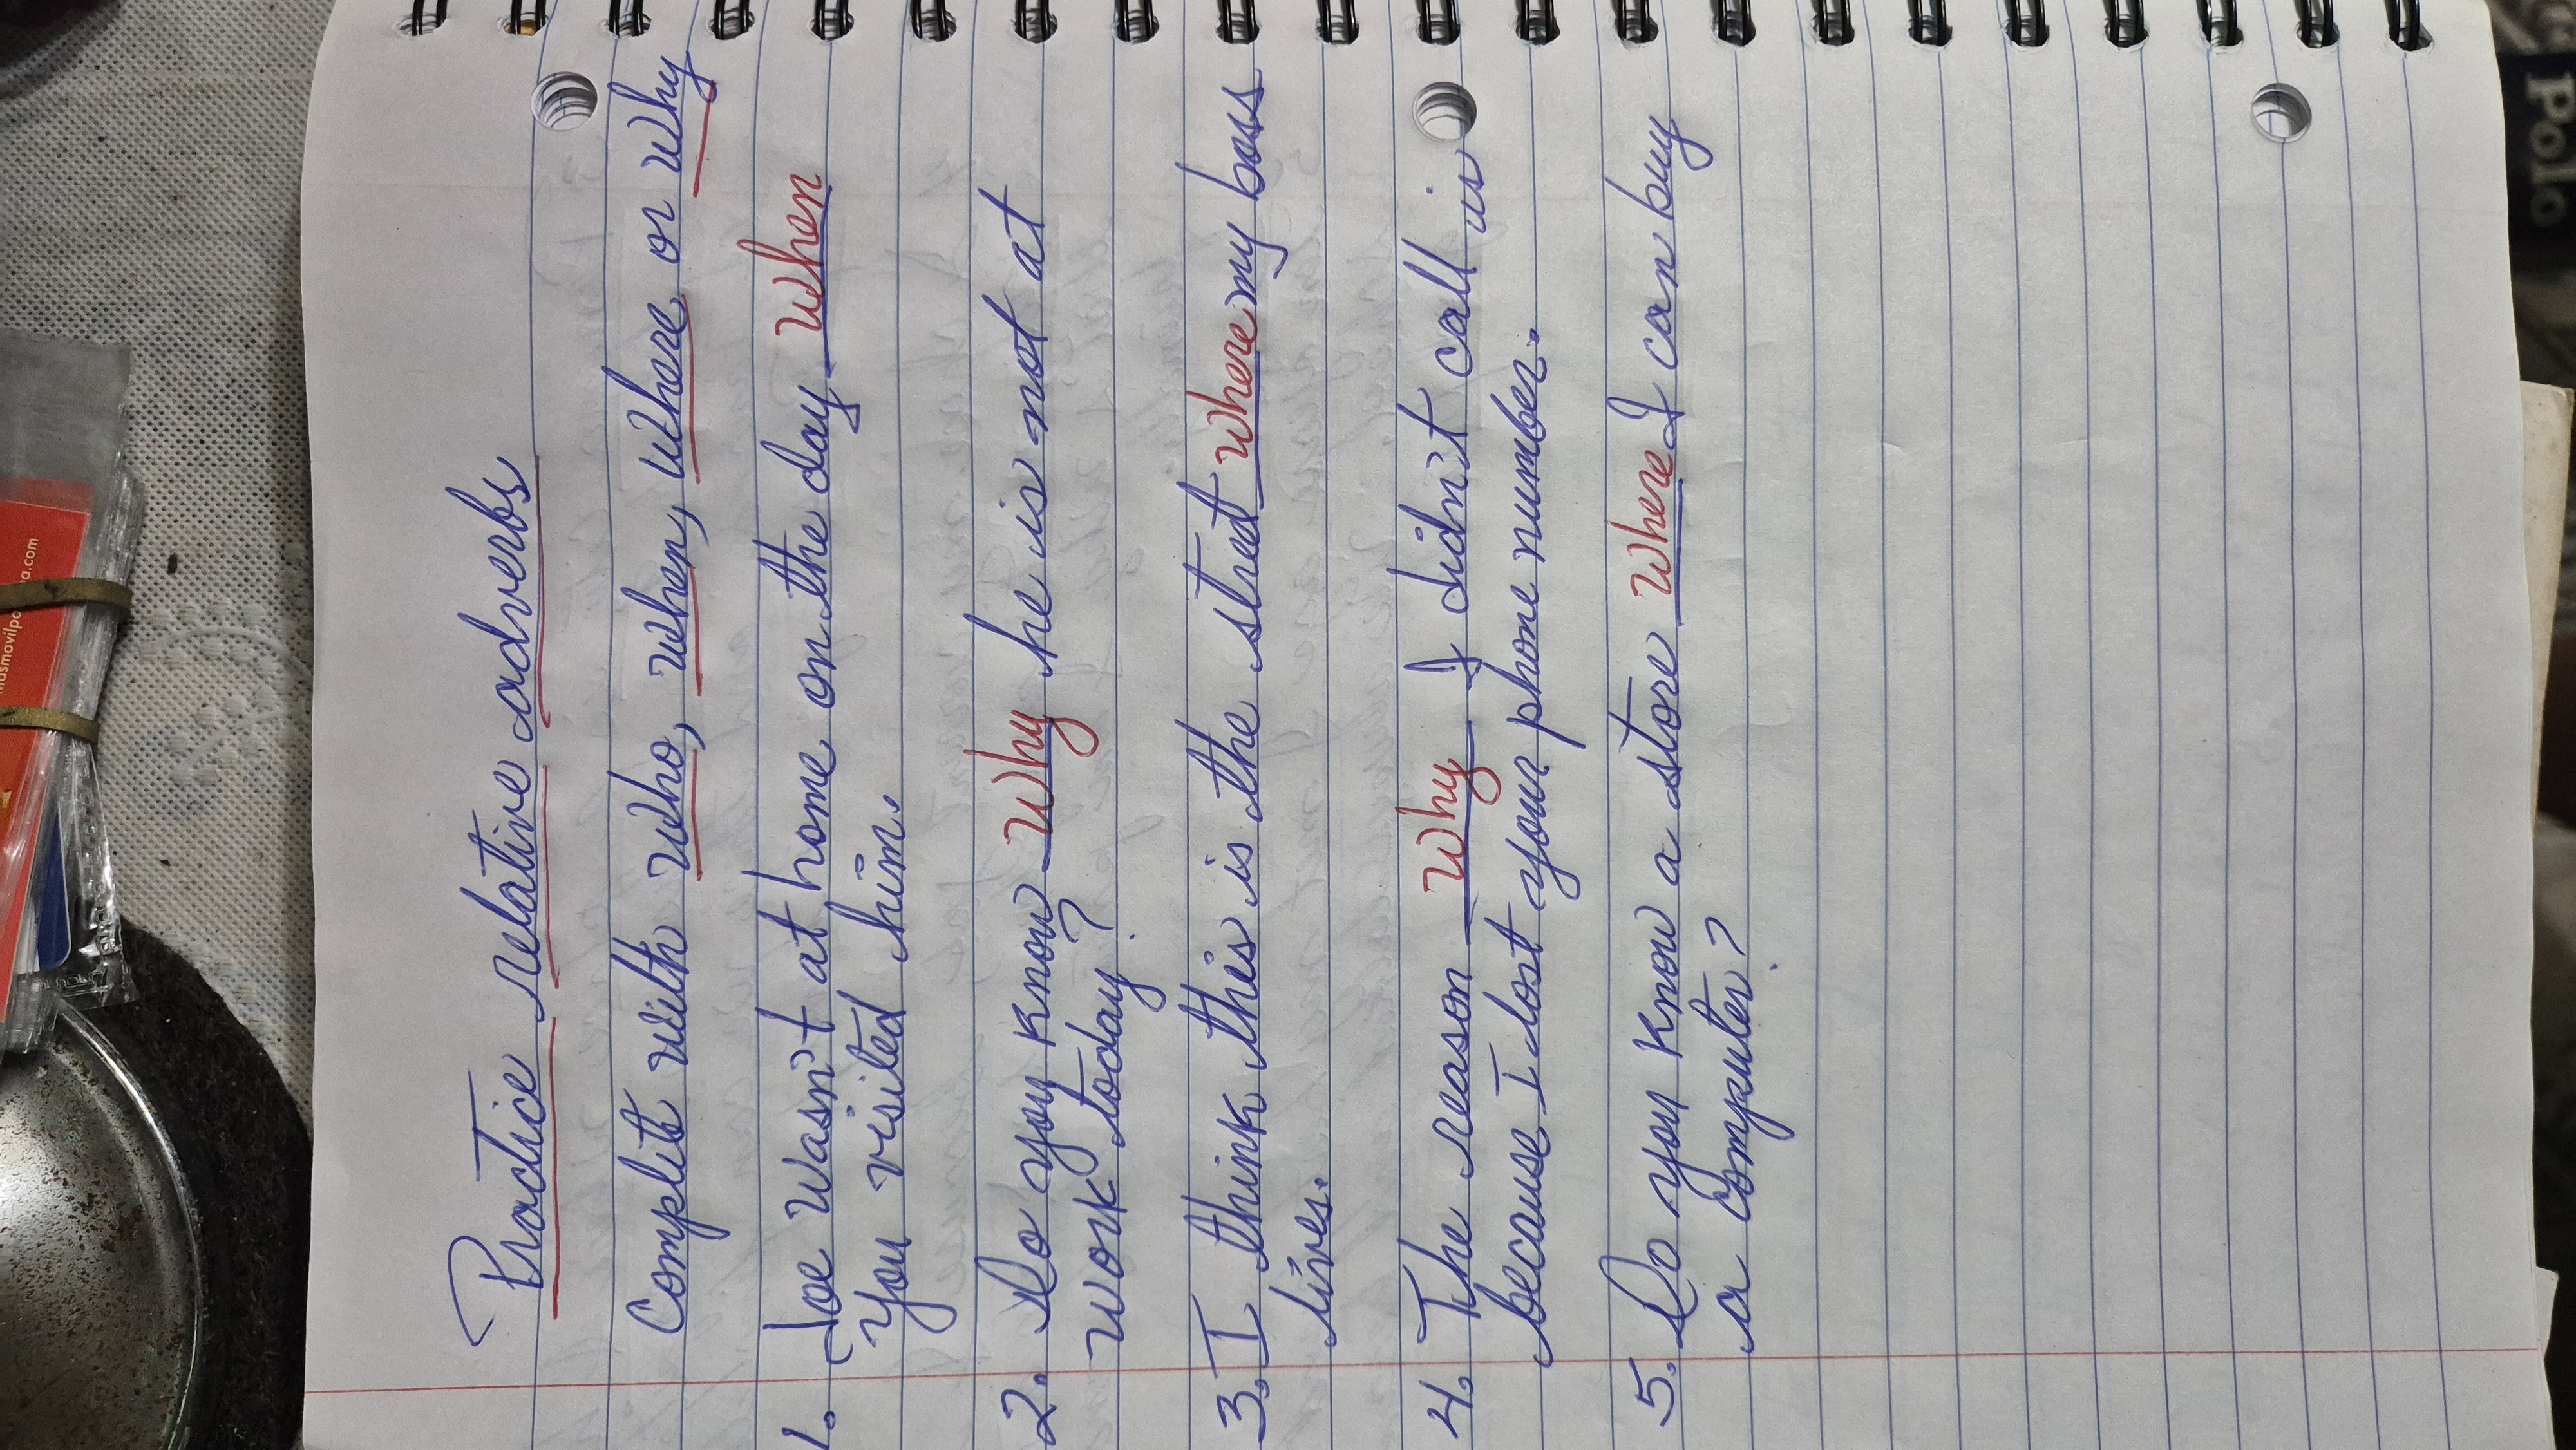 Practice relative adverbs
Complete with who, when, where or why
1. Joe wasn't at home on the day when
you visited him.
2. Do you know why he is not at
work today?
3. I think this is the street where my boss
lives.
4. The reason why I didn't call is
because I lost your phone number.
5. Do you know a store where I can buy
a computer?
Polo